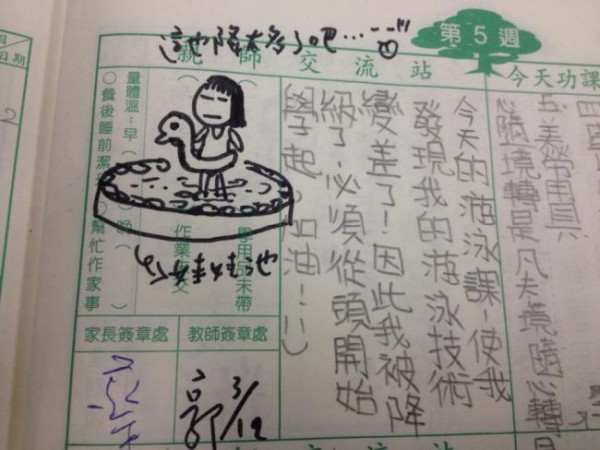 第5週
這也降太多了吧…
親師交流站
今天功課
今天的游泳課,使我
發現我的游泳技術
變差了!因此我被降
級了,必須從頭開始
學起。(加油!!)
五、美勞用具
心隨境轉是凡夫,境隨心轉是
量體溫:早(
晚(
○餐後睡前潔
○幫忙作家事
學用品未帶
作業
交
家長簽章處
教師簽章處
郭 3/12
日期